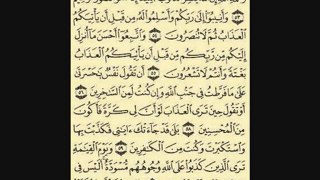 وَأَنِيبُوٓا۟ إِلَىٰ رَبِّكُمْ وَأَسْلِمُوا۟ لَهُۥ مِن قَبْلِ أَن يَأْتِيَكُمُ
ٱلْعَذَابُ ثُمَّ لَا تُنصَرُونَ ٥٤ وَٱتَّبِعُوٓا۟ أَحْسَنَ مَآ أُنزِلَ
إِلَيْكُم مِّن رَّبِّكُم مِّن قَبْلِ أَن يَأْتِيَكُمُ ٱلْعَذَابُ
بَغْتَةً وَأَنتُمْ لَا تَشْعُرُونَ ٥٥ أَن تَقُولَ نَفْسٌ يَٰحَسْرَتَىٰ
عَلَىٰ مَا فَرَّطتُ فِى جَنۢبِ ٱللَّهِ وَإِن كُنتُ لَمِنَ ٱلسَّٰخِرِينَ ٥٦
أَوْ تَقُولَ حِينَ تَرَى ٱلْعَذَابَ لَوْ أَنَّ لِى كَرَّةً فَأَكُونَ
مِنَ ٱلْمُحْسِنِينَ ٥٨ بَلَىٰ قَدْ جَآءَتْكَ ءَايَٰتِى فَكَذَّبْتَ بِهَا
وَٱسْتَكْبَرْتَ وَكُنتَ مِنَ ٱلْكَٰفِرِينَ ٥٩ وَيَوْمَ ٱلْقِيَٰمَةِ
تَرَى ٱلَّذِينَ كَذَبُوا۟ عَلَى ٱللَّهِ وُجُوهُهُم مُّسْوَدَّةٌ أَلَيْسَ فِى